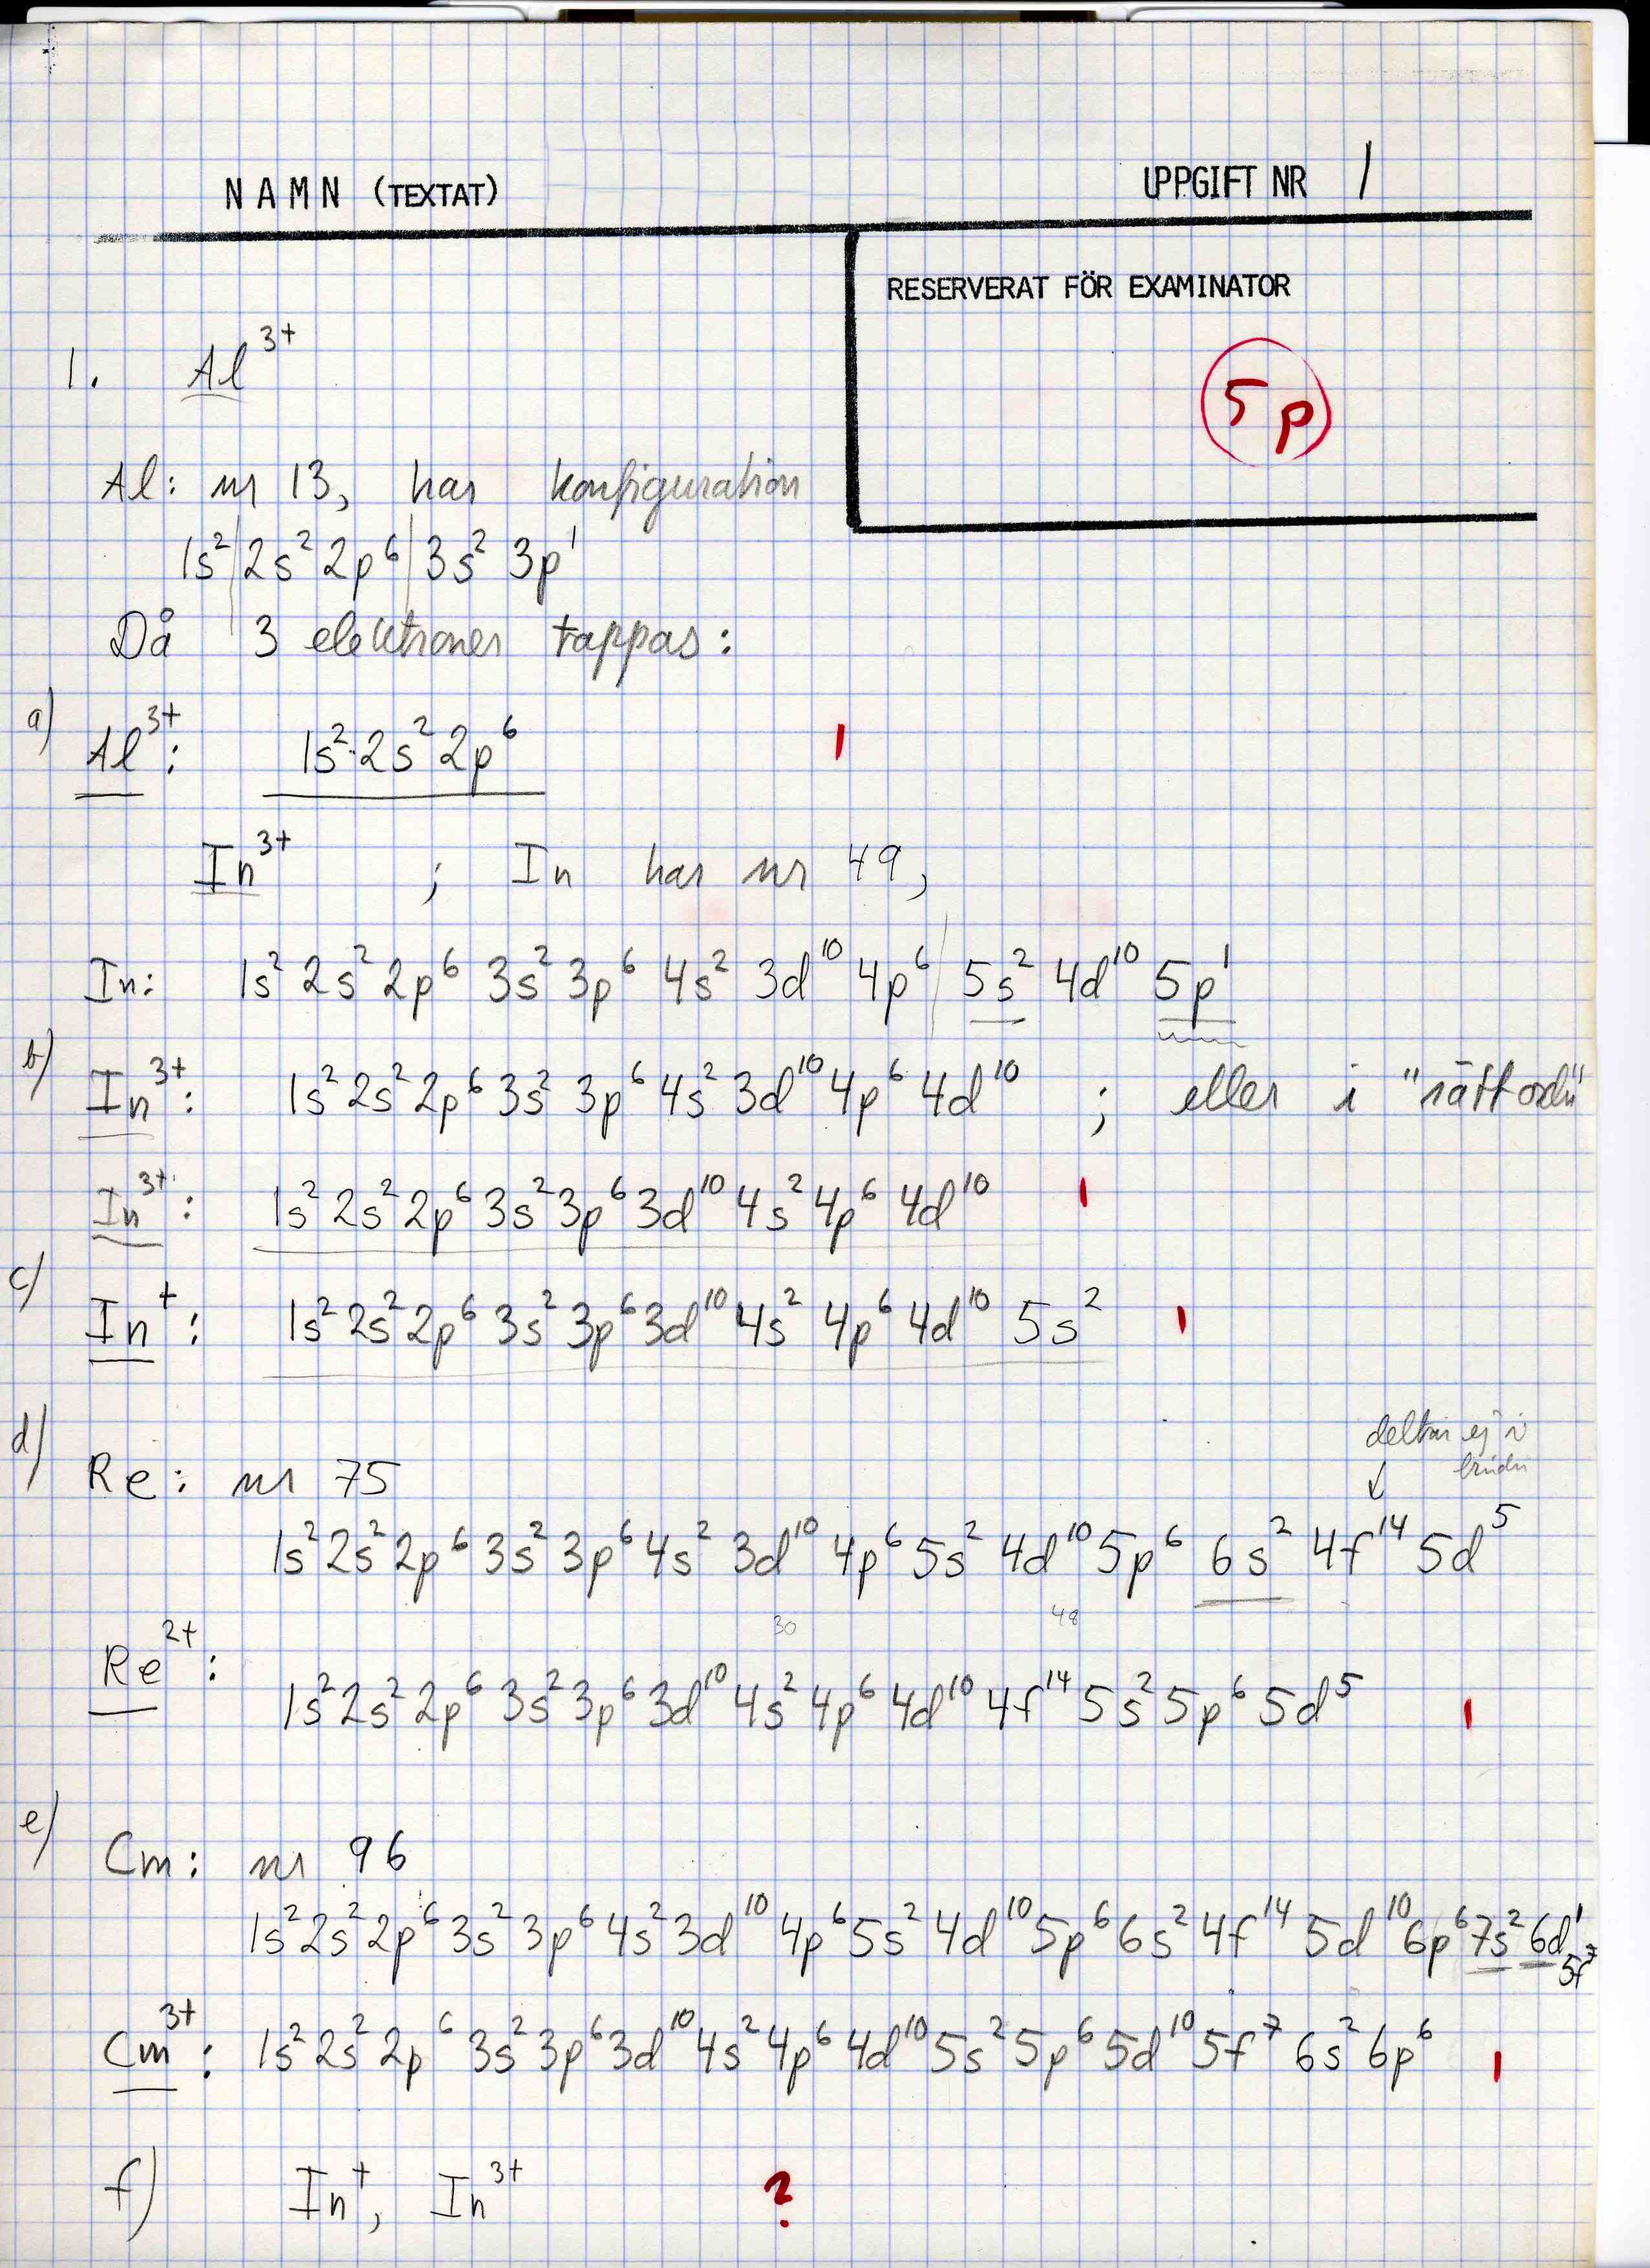 NAMN (TEXTAT)
UPPGIFT NR 1
RESERVERAT FÖR EXAMINATOR
5p
1. Al³⁺
Al: nr 13, har konfiguration
1s² 2s² 2p⁶ 3s² 3p¹
Då 3 elektroner tappas:
a) Al³⁺: 1s² 2s² 2p⁶ 1
In³⁺ ; In har nr 49,
In: 1s² 2s² 2p⁶ 3s² 3p⁶ 4s² 3d¹⁰ 4p⁶ 5s² 4d¹⁰ 5p¹
b) In³⁺: 1s² 2s² 2p⁶ 3s² 3p⁶ 4s² 3d¹⁰ 4p⁶ 4d¹⁰ ; eller i "rätt
In³⁺: 1s² 2s² 2p⁶ 3s² 3p⁶ 3d¹⁰ 4s² 4p⁶ 4d¹⁰ 1
c) In⁺: 1s² 2s² 2p⁶ 3s² 3p⁶ 3d¹⁰ 4s² 4p⁶ 4d¹⁰ 5s² 1
deltar ej i
d) Re: nr 75
1s² 2s² 2p⁶ 3s² 3p⁶ 4s² 3d¹⁰ 4p⁶ 5s² 4d¹⁰ 5p⁶ 6s² 4f¹⁴ 5d⁵
30 48
Re²⁺: 1s² 2s² 2p⁶ 3s² 3p⁶ 3d¹⁰ 4s² 4p⁶ 4d¹⁰ 4f¹⁴ 5s² 5p⁶ 5d⁵ 1
e) Cm: nr 96
1s² 2s² 2p⁶ 3s² 3p⁶ 4s² 3d¹⁰ 4p⁶ 5s² 4d¹⁰ 5p⁶ 6s² 4f¹⁴ 5d¹⁰ 6p⁶ 7s² 6d¹ 5f⁷
Cm³⁺: 1s² 2s² 2p⁶ 3s² 3p⁶ 3d¹⁰ 4s² 4p⁶ 4d¹⁰ 5s² 5p⁶ 5d¹⁰ 5f⁷ 6s² 6p⁶ 1
f) In⁺, In³⁺ ?